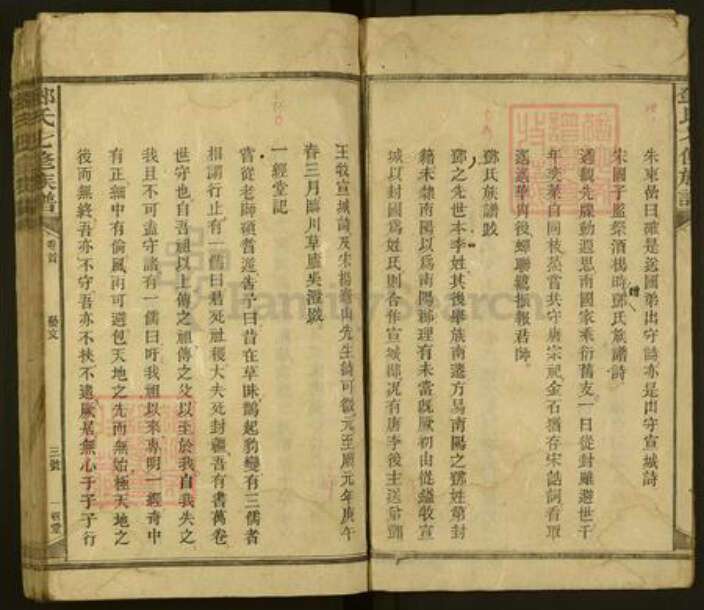 朱東嵒曰確是送國弟出守詩亦是出守宣城詩
宋國子監祭酒楊時鄧氏族譜詩
遇觀先牒動遐思南國家乘衍舊支一日從封雖避世千
年奕葉自同枝蒸嘗共守唐宗祀金石猶存宋誥詞看取
後蟬聯纘振報君師
鄧氏族譜跋
鄧之先世本李姓其後舉族南遷方易南陽之鄧姓第封
籍未隸南陽以爲南陽郡理有未當旣厥初由從鎰牧宣
城以封國爲姓氏則合作宣城郡况有唐李後主送弟鄧
王牧宣城詩及宋楊龜山先生詩可徵元至順元年庚午
春三月臨川草廬吳澄跋
一經堂記
嘗從老師碩耆遊告予曰昔在草昧鵲起豹變有三儒者
相謂行止有一儒曰君死社稷大夫死封疆吾有書萬卷
世守也自吾祖以上傳之祖傳之父以至於我自我失之
我且不可盍守諸有一儒曰吁我祖以來專明一經奇中
有正無中有倫風雨可避包天地之先而無始極天地之
後而無終吾亦不守吾亦不挾不遠厥居無心于于于行
鄧氏七修族譜
卷首
藝文
三號
一經堂
FamilySearch